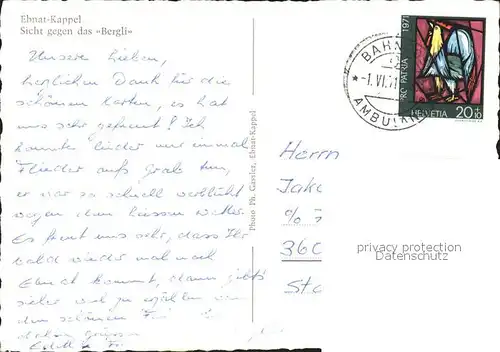 Ebnat-Kappel
Sicht gegen das «Bergli»
Unsere Lieben,
herzlichen Dank für die
schönen Karten, es hat
uns sehr gefreut! Ich
konnte leider nur einmal
Flieder aufs Grab tun,
er war so schnell verblüht
wegen dem heissen Wetter.
Es freut uns sehr, dass Ihr
bald wieder mal nach
Ebnat kommt, dann gibt's
sicher viel zu erzählen von
den schönen
Photo Ph. Gessler, Ebnat-Kappel
PRO PATRIA 1971
HELVETIA 20+10
BAHN
-1.VI.71
AMBULANT
Herrn
Jako
% 
360
privacy protection
Datenschutz